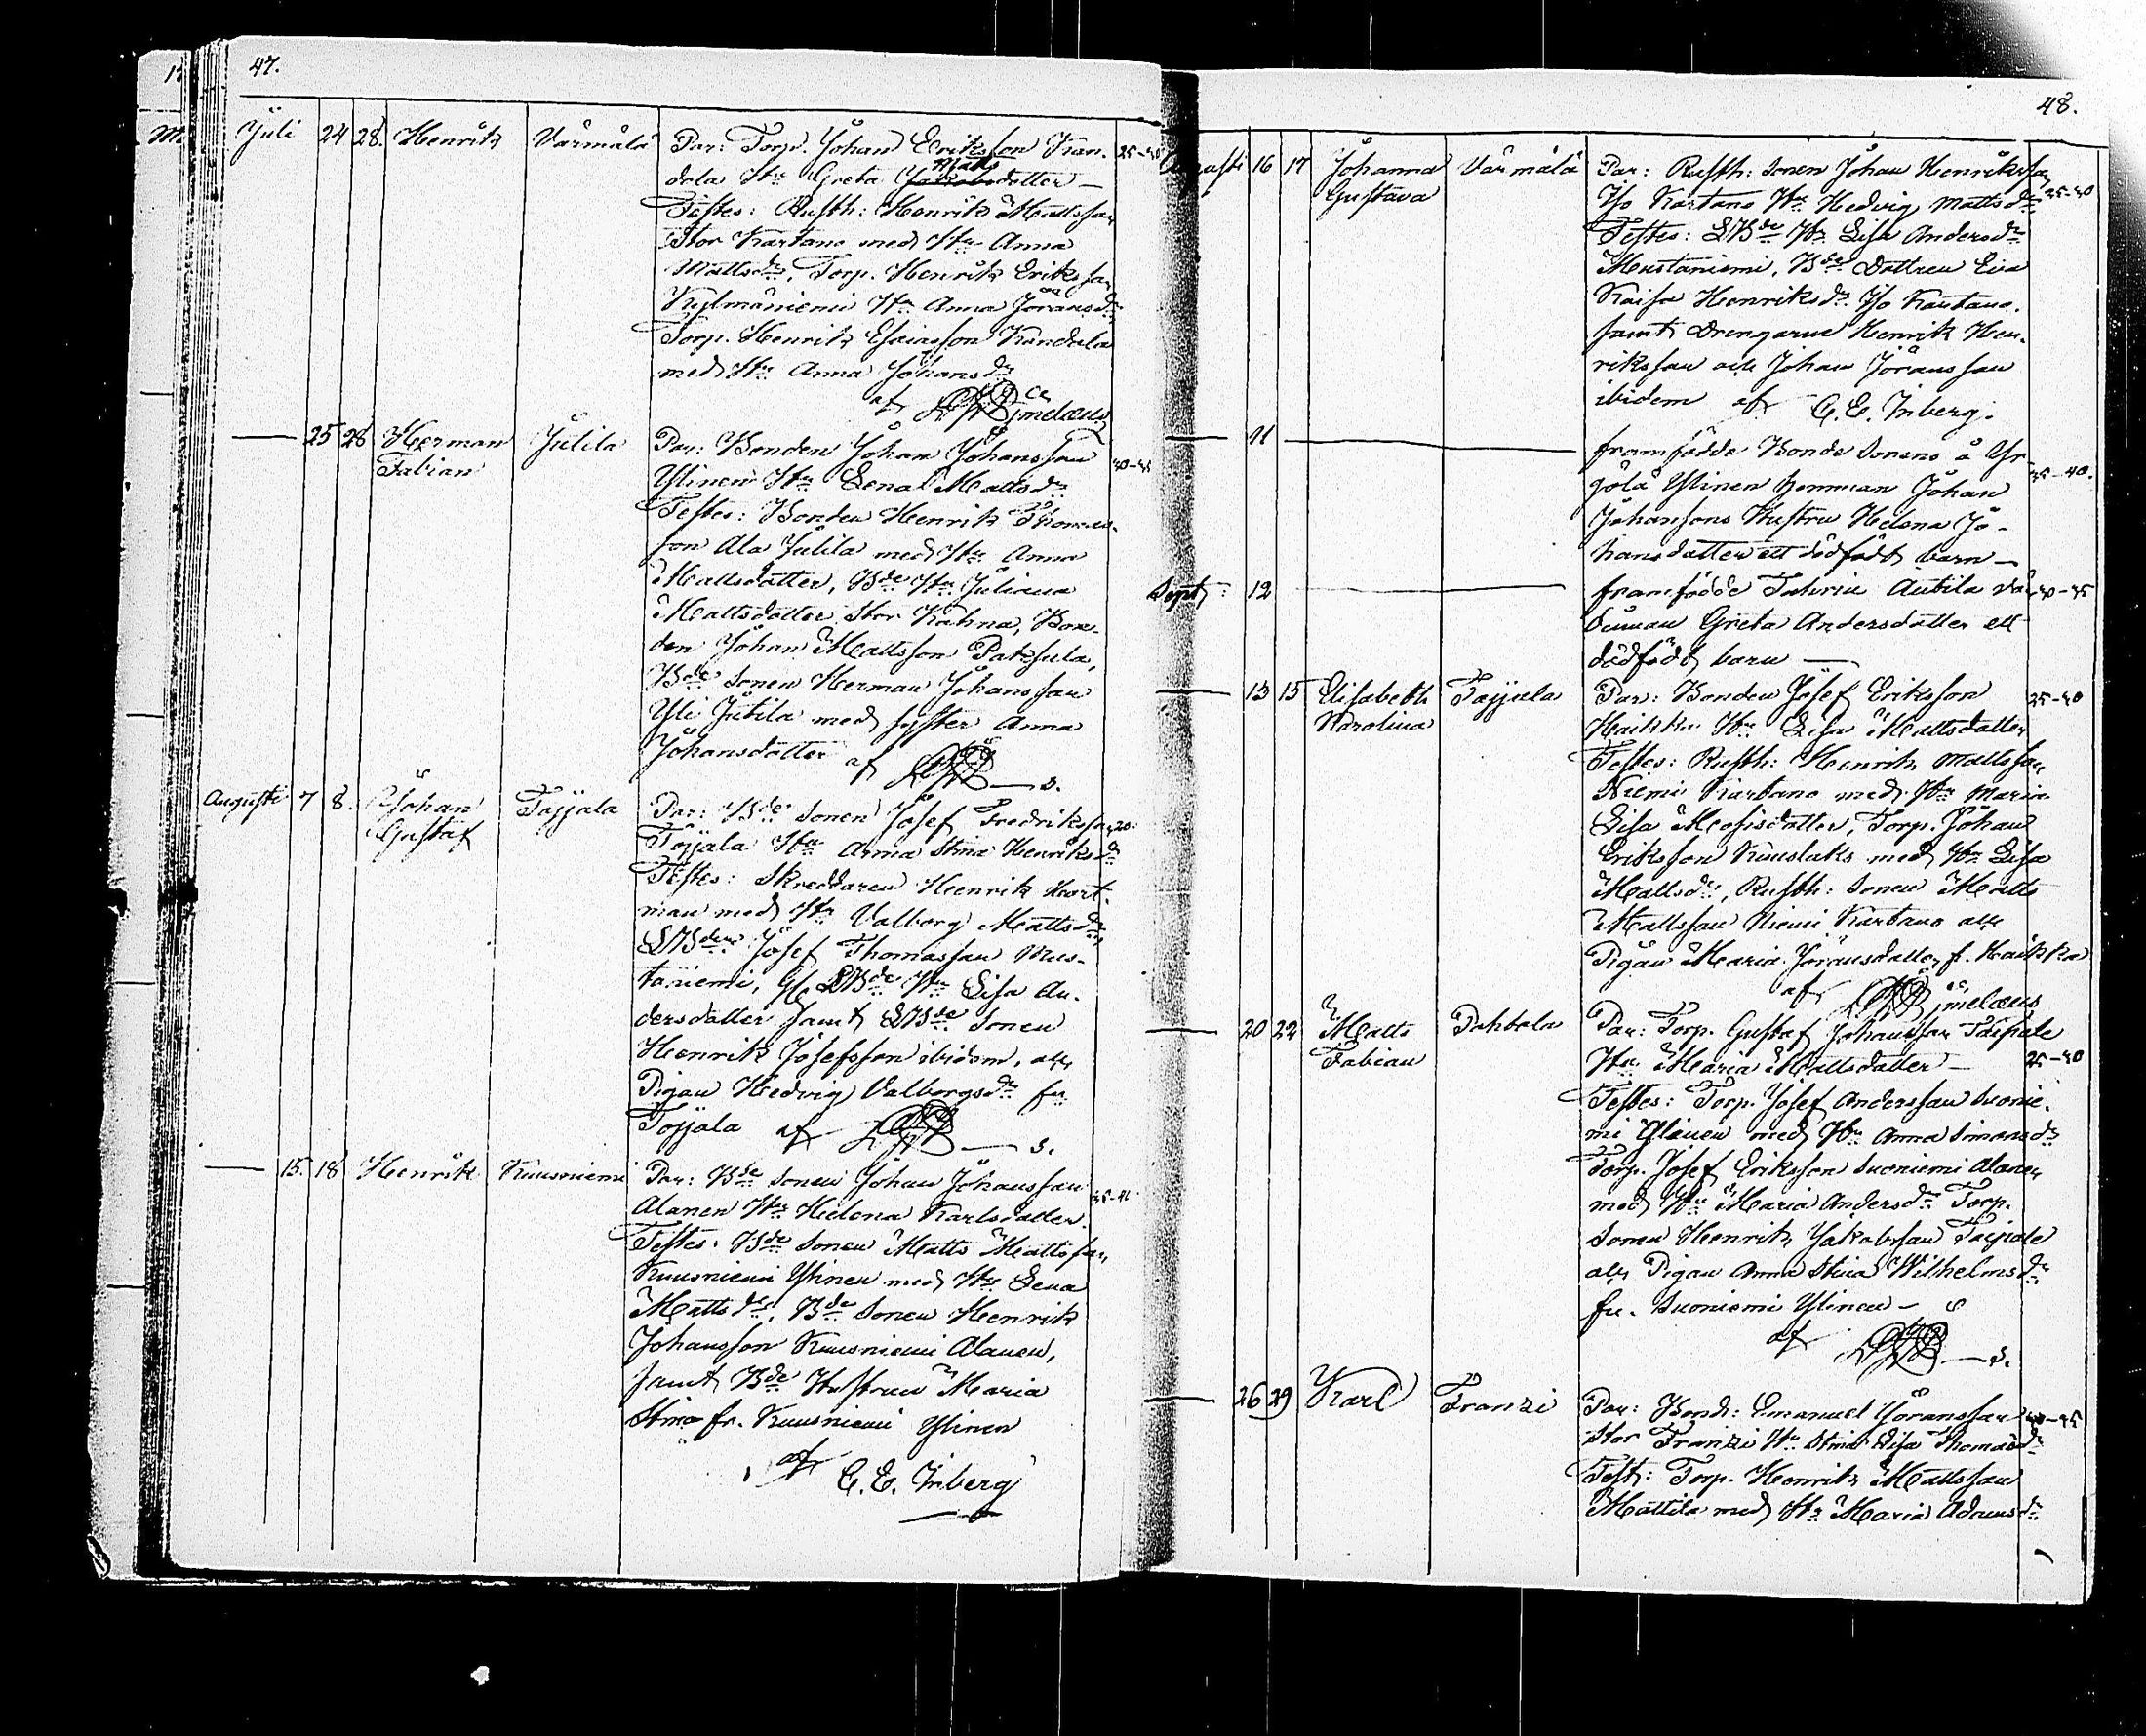 47.
Juli 24 28. Henrik Värmälä Par: Torp. Johan Eriksson Kan- 25-30
dola Hu Greta Matts Jakobsdotter —
Testes: Rusth: Henrik Mattsson
Stor Kartano med Hu Anna
Mattsdr, Torp. Henrik Eriksson
Kylmäniemi Hu Anna Göransdr
Torp. Henrik Esaiasson Kandola
med Hu Anna Johansdr
af
— 25 28 Herman Julila Par: Bonden Johan Johansson
Fabian
Ylinen Hu Lena Mattsdr
Testes: Bonden Henrik Thomas-
son Ala Julila med Hu Anna
Mattsdotter, Bde Hu Juliana
Mattsdotter Stor Kahna, Bon-
den Johan Mattsson Paksula,
Bde Sonen Herman Johansson
Yli Jutila med syster Anna
Johansdotter af — s.
Augusti 7 8. Johan Tojjala Par: Bde Sonen Josef Fredriksson
Gustaf
Tojjala Hu Anna Stina Henriksdr
Testes: Skreddaren Henrik Hart-
man med Hu Valborg Mattsdr
LBden Josef Thomasson Mus-
taniemi, LBde Hu Lisa An-
dersdotter samt LBde Sonen
Henrik Josefsson ibidem, och
Pigan Hedvig Valborgsdr fr.
Tojjala af — s.
— 15. 18 Henrik Kuusniemi Par: Bde Sonen Johan Johansson
Alanen Hu Helena Karlsdotter
Testes: Bde Sonen Matts Mattsson
Kuusniemi Ylinen med Hu Lena
Mattsdr, Bde Sonen Henrik
Johansson Kuusniemi Alanen,
samt Bde Hustrun Maria
Stina fr. Kuusniemi Ylinen
af C. E. Inberg
48.
Augusti 16 17 Johanna Värmälä Par: Rusth: Sonen Johan Henriksson
Gustava
Iso Kartano Hu Hedvig Mattsdr 25-30
Testes: LBde Hu Lisa Andersdr
Mustaniemi, Bde Dottren Eva
Kaisa Henriksdr Iso Kartano.
samt Drengarne Henrik Hen-
riksson och Johan Göransson
ibidem af C. E. Inberg.
— 11 — framfödde Bonde Sonens å Yr-
jölä Ylinen Johan 35-40.
Johansons Hustru Helena Jo-
hansdotter ett dödfödt barn —
Sept: 12 — framfödde
Greta Andersdotter ett
dödfödt barn —
— 13 15 Elisabeth Tojjala Par: Bonden Josef Eriksson 25-30
Karolina
Haikka Hu Lisa Mattsdotter
Testes: Rusth: Henrik Mattsson
Niemi Kartano med Hu Maria
Lisa Mosisdotter, Torp. Johan
Eriksson Kuuslaks med Hu Lisa
Mattsdr, Rusth: Sonen Matts
Mattsson Niemi Kartano och
Pigan Maria Göransdotter f. Haikka
af
— 20 22 Matts Pohtola Par: Torp. Gustaf Johansson Taipale
Fabian
Hu Maria Mattsdotter — 25-30
Testes: Torp. Josef Andersson Suonie-
mi Ylinen med Hu Anna Simonsdr
Torp. Josef Eriksson Suoniemi Alanen
med Hu Maria Andersdr Torp.
Sonen Henrik Jakobsson Taipale
och Pigan Anna Stina Wilhelmsdr
fr. Suoniemi Ylinen —
af — s.
— 26 29 Karl Franzi Par: Bond: Emanuel Göransson
Stor Franzi Hu Stina Lisa Thomasdr
Test: Torp. Henrik Mattsson
Mattila med Hu Maria Adamsdr